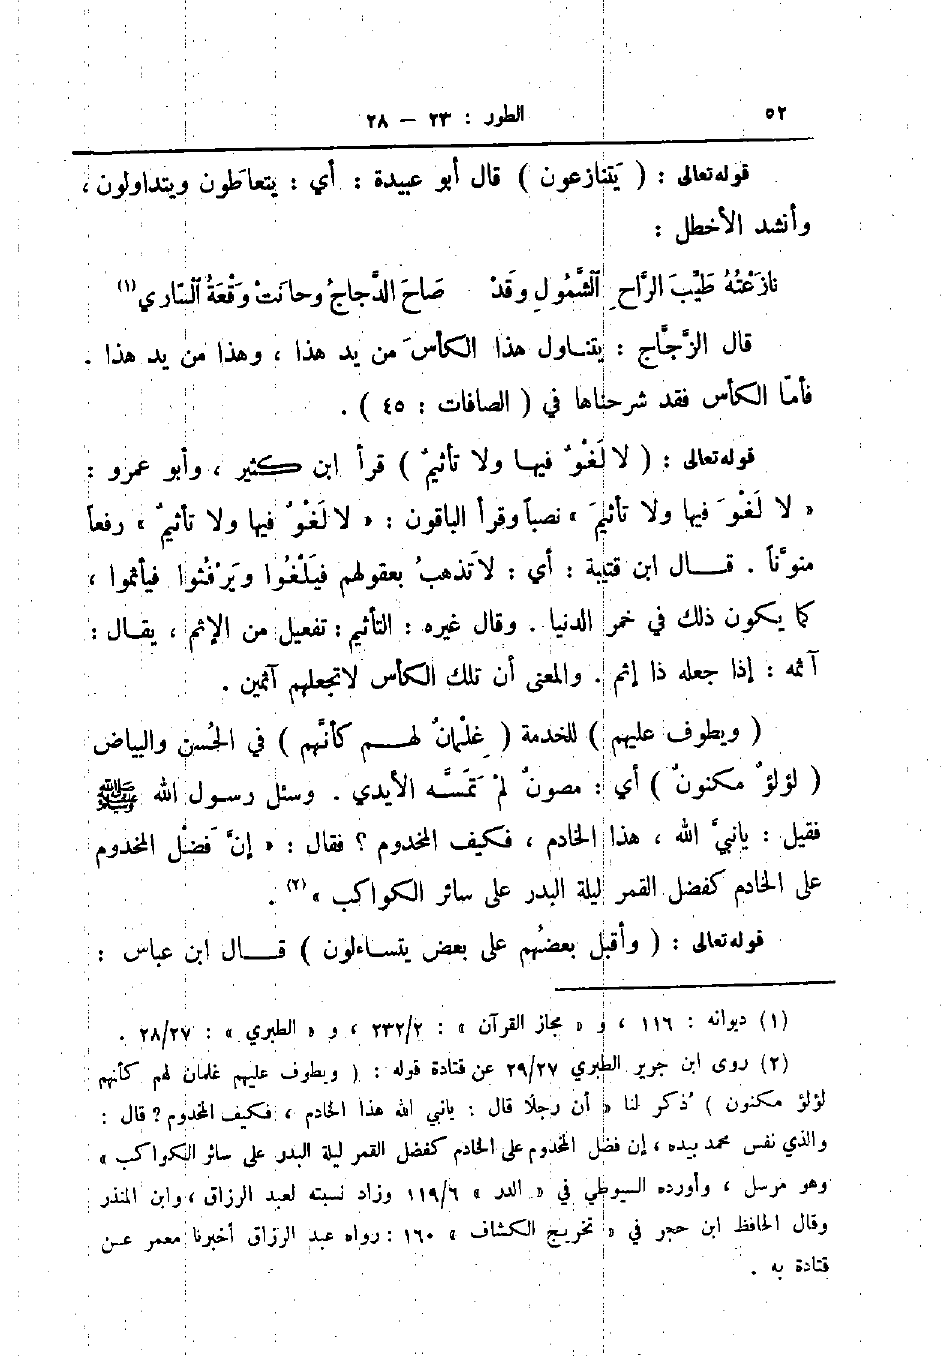 ٥٢
الطور : ٢٣ – ٢٨
قوله تعالى : ( يَتنازعون ) قال أبو عبيدة : أي : يتعاطَون ويتداولون ،
وأنشد الأخطل :
نازَعْتُهُ طَيِّبَ الرَّاحِ الشَّمُولِ وقَدْ صَاحَ الدَّجاجُ وحانَتْ وَقْعَةُ السّاري(١)
قال الزَّجَّاج : يتنـاول هذا الكأسَ من يد هذا ، وهذا من يد هذا .
فأمّا الكأس فقد شرحناها في ( الصافات : ٤٥ ) .
قوله تعالى : ( لا لَغْوٌ فيهـا ولا تأثيمٌ ) قرأ ابن كثير ، وأبو عمرو :
« لا لَغْوَ فيها ولا تأثيمَ » نصباً وقرأ الباقون : « لا لَغْوٌ فيها ولا تأثيمٌ » رفعاً
منوَّناً . قـــال ابن قتيبة : أي : لا تَذهبُ بعقولهم فيَلْغُوا ويَرْفُثوا فيأثموا ،
كما يكون ذلك في خمر الدنيا . وقال غيره : التأثيم : تفعيل من الإثم ، يقـال :
آثمه : إذا جعله ذا إثم . والمعنى أن تلك الكأس لا تجعلهم آثمين .
( ويطوف عليهم ) للخدمة ( غِلْمانٌ لهــم كأنَّهم ) في الحُسن والبياض
( لؤلؤٌ مكنونٌ ) أي : مصونٌ لمْ تَمَسَّه الأيدي . وسئل رسول الله ﷺ
فقيل : يا نبيَّ الله ، هذا الخادم ، فكيف المخدوم ؟ فقال : « إنَّ فَضْل المخدوم
على الخادم كفضل القمر ليلة البدر على سائر الكواكب »(٢) .
قوله تعالى : ( وأقبل بعضُهم على بعض يتسـاءلون ) قـــال ابن عباس :
(١) ديوانه : ١١٦ ، و « مجاز القرآن » : ٢٣٢/٢ ، و « الطبري » : ٢٨/٢٧ .
(٢) روى ابن جرير الطبري ٢٩/٢٧ عن قتادة قوله : ( ويطوف عليهم غلمان لهم كأنهم
لؤلؤ مكنون ) ذُكر لنا « أن رجلاً قال : يا نبي الله هذا الخادم ، فكيف المخدوم ؟ قال :
والذي نفس محمد بيده ، إن فضل المخدوم على الخادم كفضل القمر ليلة البدر على سائر الكواكب »
وهو مرسل ، وأورده السيوطي في « الدر » ١١٩/٦ وزاد نسبته لعبد الرزاق ، وابن المنذر
وقال الحافظ ابن حجر في « تخريج الكشاف » ١٦٠ : رواه عبد الرزاق أخبرنا معمر عـن
قتادة به .